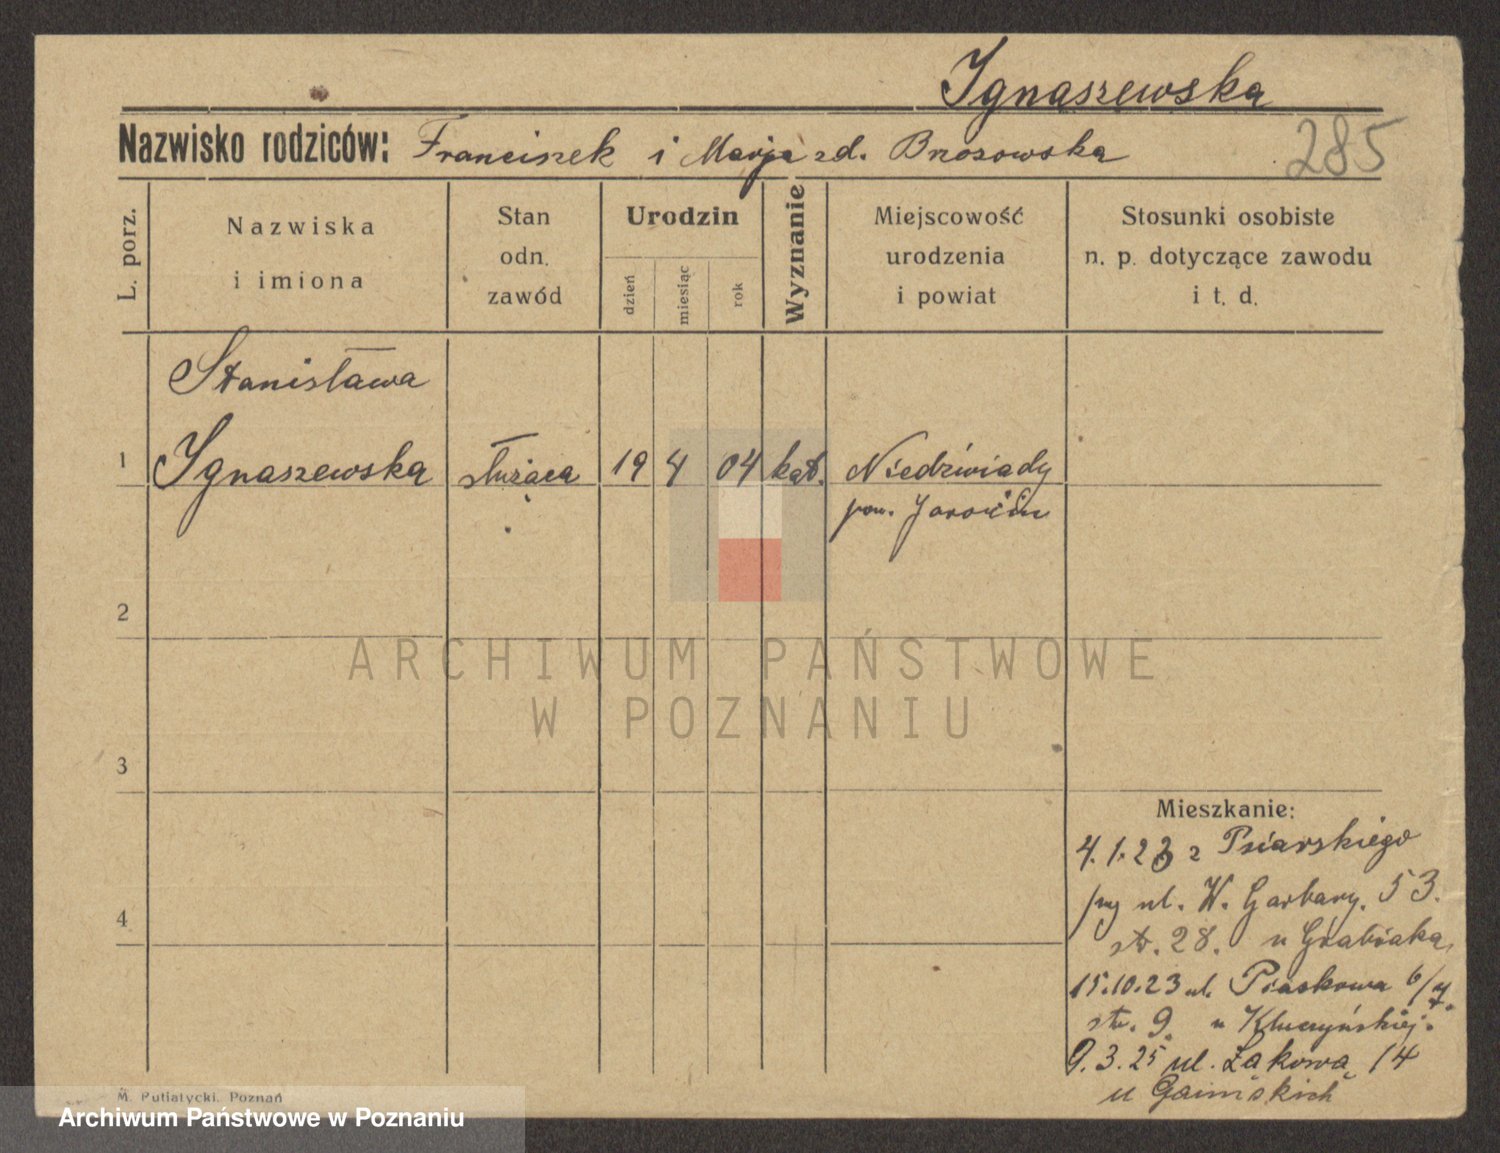 Ignaszewska
Nazwisko rodziców: Franciszek i Marja zd. Brzozowska
285
L. porz.
Nazwiska
i imiona
Stan
odn.
zawód
Urodzin
dzień
miesiąc
rok
Wyznanie
Miejscowość
urodzenia
i powiat
Stosunki osobiste
n. p. dotyczące zawodu
i t. d.
Stanisława
1 Ignaszewska służąca 19 4 04 kat. Niedźwiady
pow. Jarocin
2
ARCHIWUM PAŃSTWOWE
W POZNANIU
3
Mieszkanie:
4.1.23 z Psiarskiego
ul. W. Garbary. 53.
str. 28. u Grabiaka
15.10.23 ul. Piaskowa 6/7.
str. 9. u Kluczyńskiej.
4
9.3.25 ul. Łąkowa 14
u
M. Putiatycki. Poznań
Archiwum Państwowe w Poznaniu